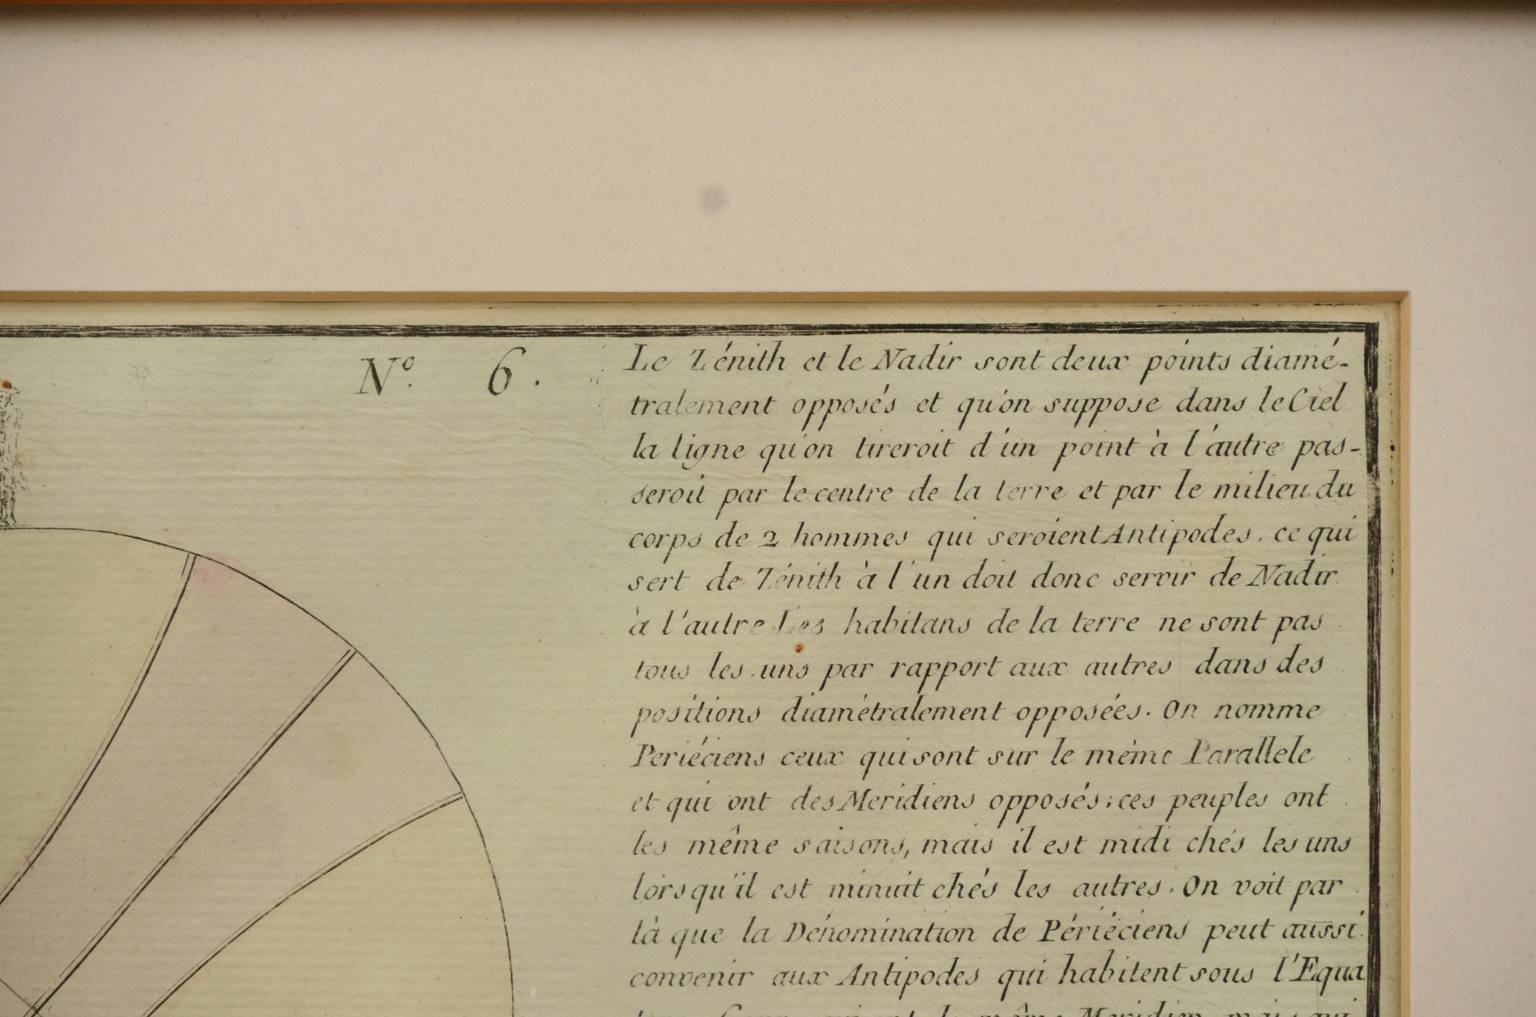 N.º 6.
Le Zénith et le Nadir sont deux points diamé-
tralement opposés et qu'on suppose dans le Ciel
la ligne qu'on tireroit d'un point à l'autre pas-
seroit par le centre de la terre et par le milieu du
corps de 2 hommes qui seroient Antipodes. ce qui
sert de Zénith à l'un doit donc servir de Nadir
à l'autre Les habitans de la terre ne sont pas
tous les uns par rapport aux autres dans des
positions diamétralement opposées. On nomme
Periéciens ceux qui sont sur le même Parallele
et qui ont des Meridiens opposés; ces peuples ont
les même saisons, mais il est midi chés les uns
lorsqu'il est minuit chés les autres. On voit par
là que la Dénomination de Périéciens peut aussi
convenir aux Antipodes qui habitent sous l'Equa
le même Meridien mais qui